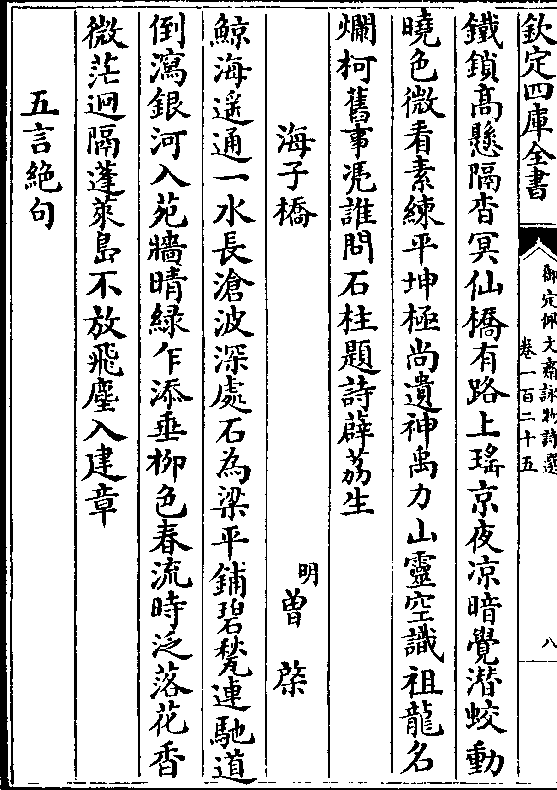 欽定四庫全書
御定佩文齋詠物詩選
卷一百二十五
八
鐵鎖髙懸隔杳冥仙橋有路上瑤京夜凉暗覺潜蛟動
曉色微看素練平坤極尚遺神禹力山靈空識祖龍名
爛柯舊事凭誰問石柱題詩薜荔生
海子橋
明
曾棨
鯨海遥通一水長滄波深處石為梁平鋪碧甃連馳道
倒瀉銀河入苑牆晴緑乍添垂栁色春流時泛落花香
微茫迥隔蓬萊島不放飛塵入建章
五言絶句